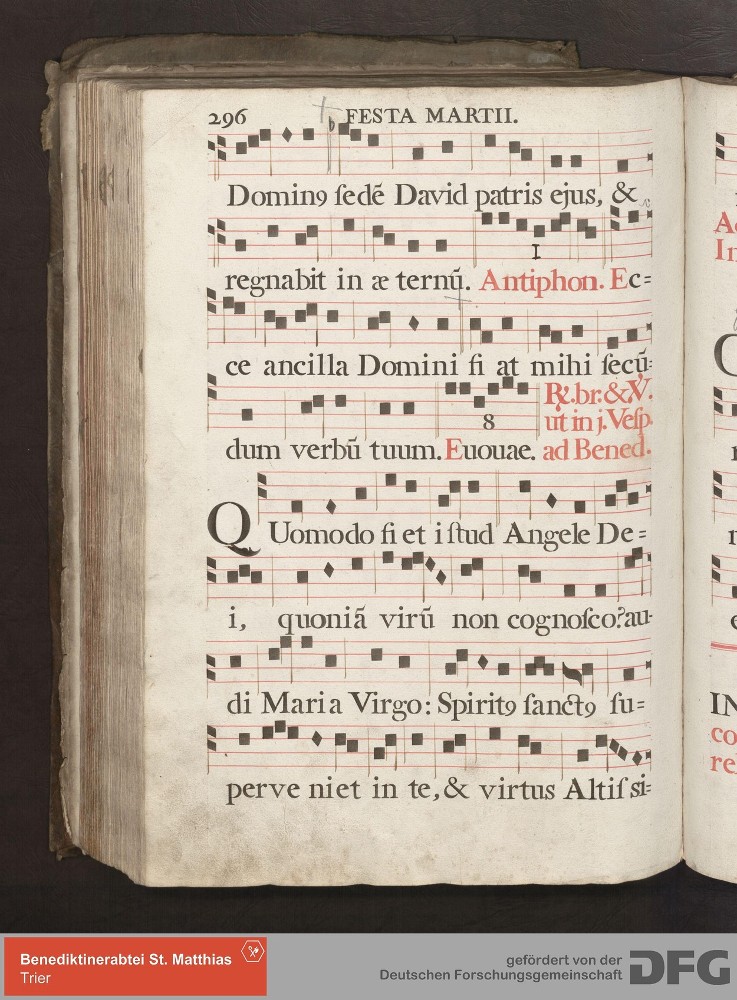 296 FESTA MARTII.
Dominꝯ ſedē David patris ejus, &
I
regnabit in æ ternū. Antiphon. Ec=
ce ancilla Domini fi at mihi ſecū=
8
℟.br.&℣.
ut in j. Veſp.
dum verbū tuum. Euouae. ad Bened.
QUomodo fi et i ſtud Angele De=
i, quoniā virū non cognoſco? au-
di Mari a Virgo: Spiritꝯ ſanctꝯ ſu=
perve niet in te, & virtus Altiſ si=
Benediktinerabtei St. Matthias
Trier
gefördert von der
Deutschen Forschungsgemeinschaft
DFG